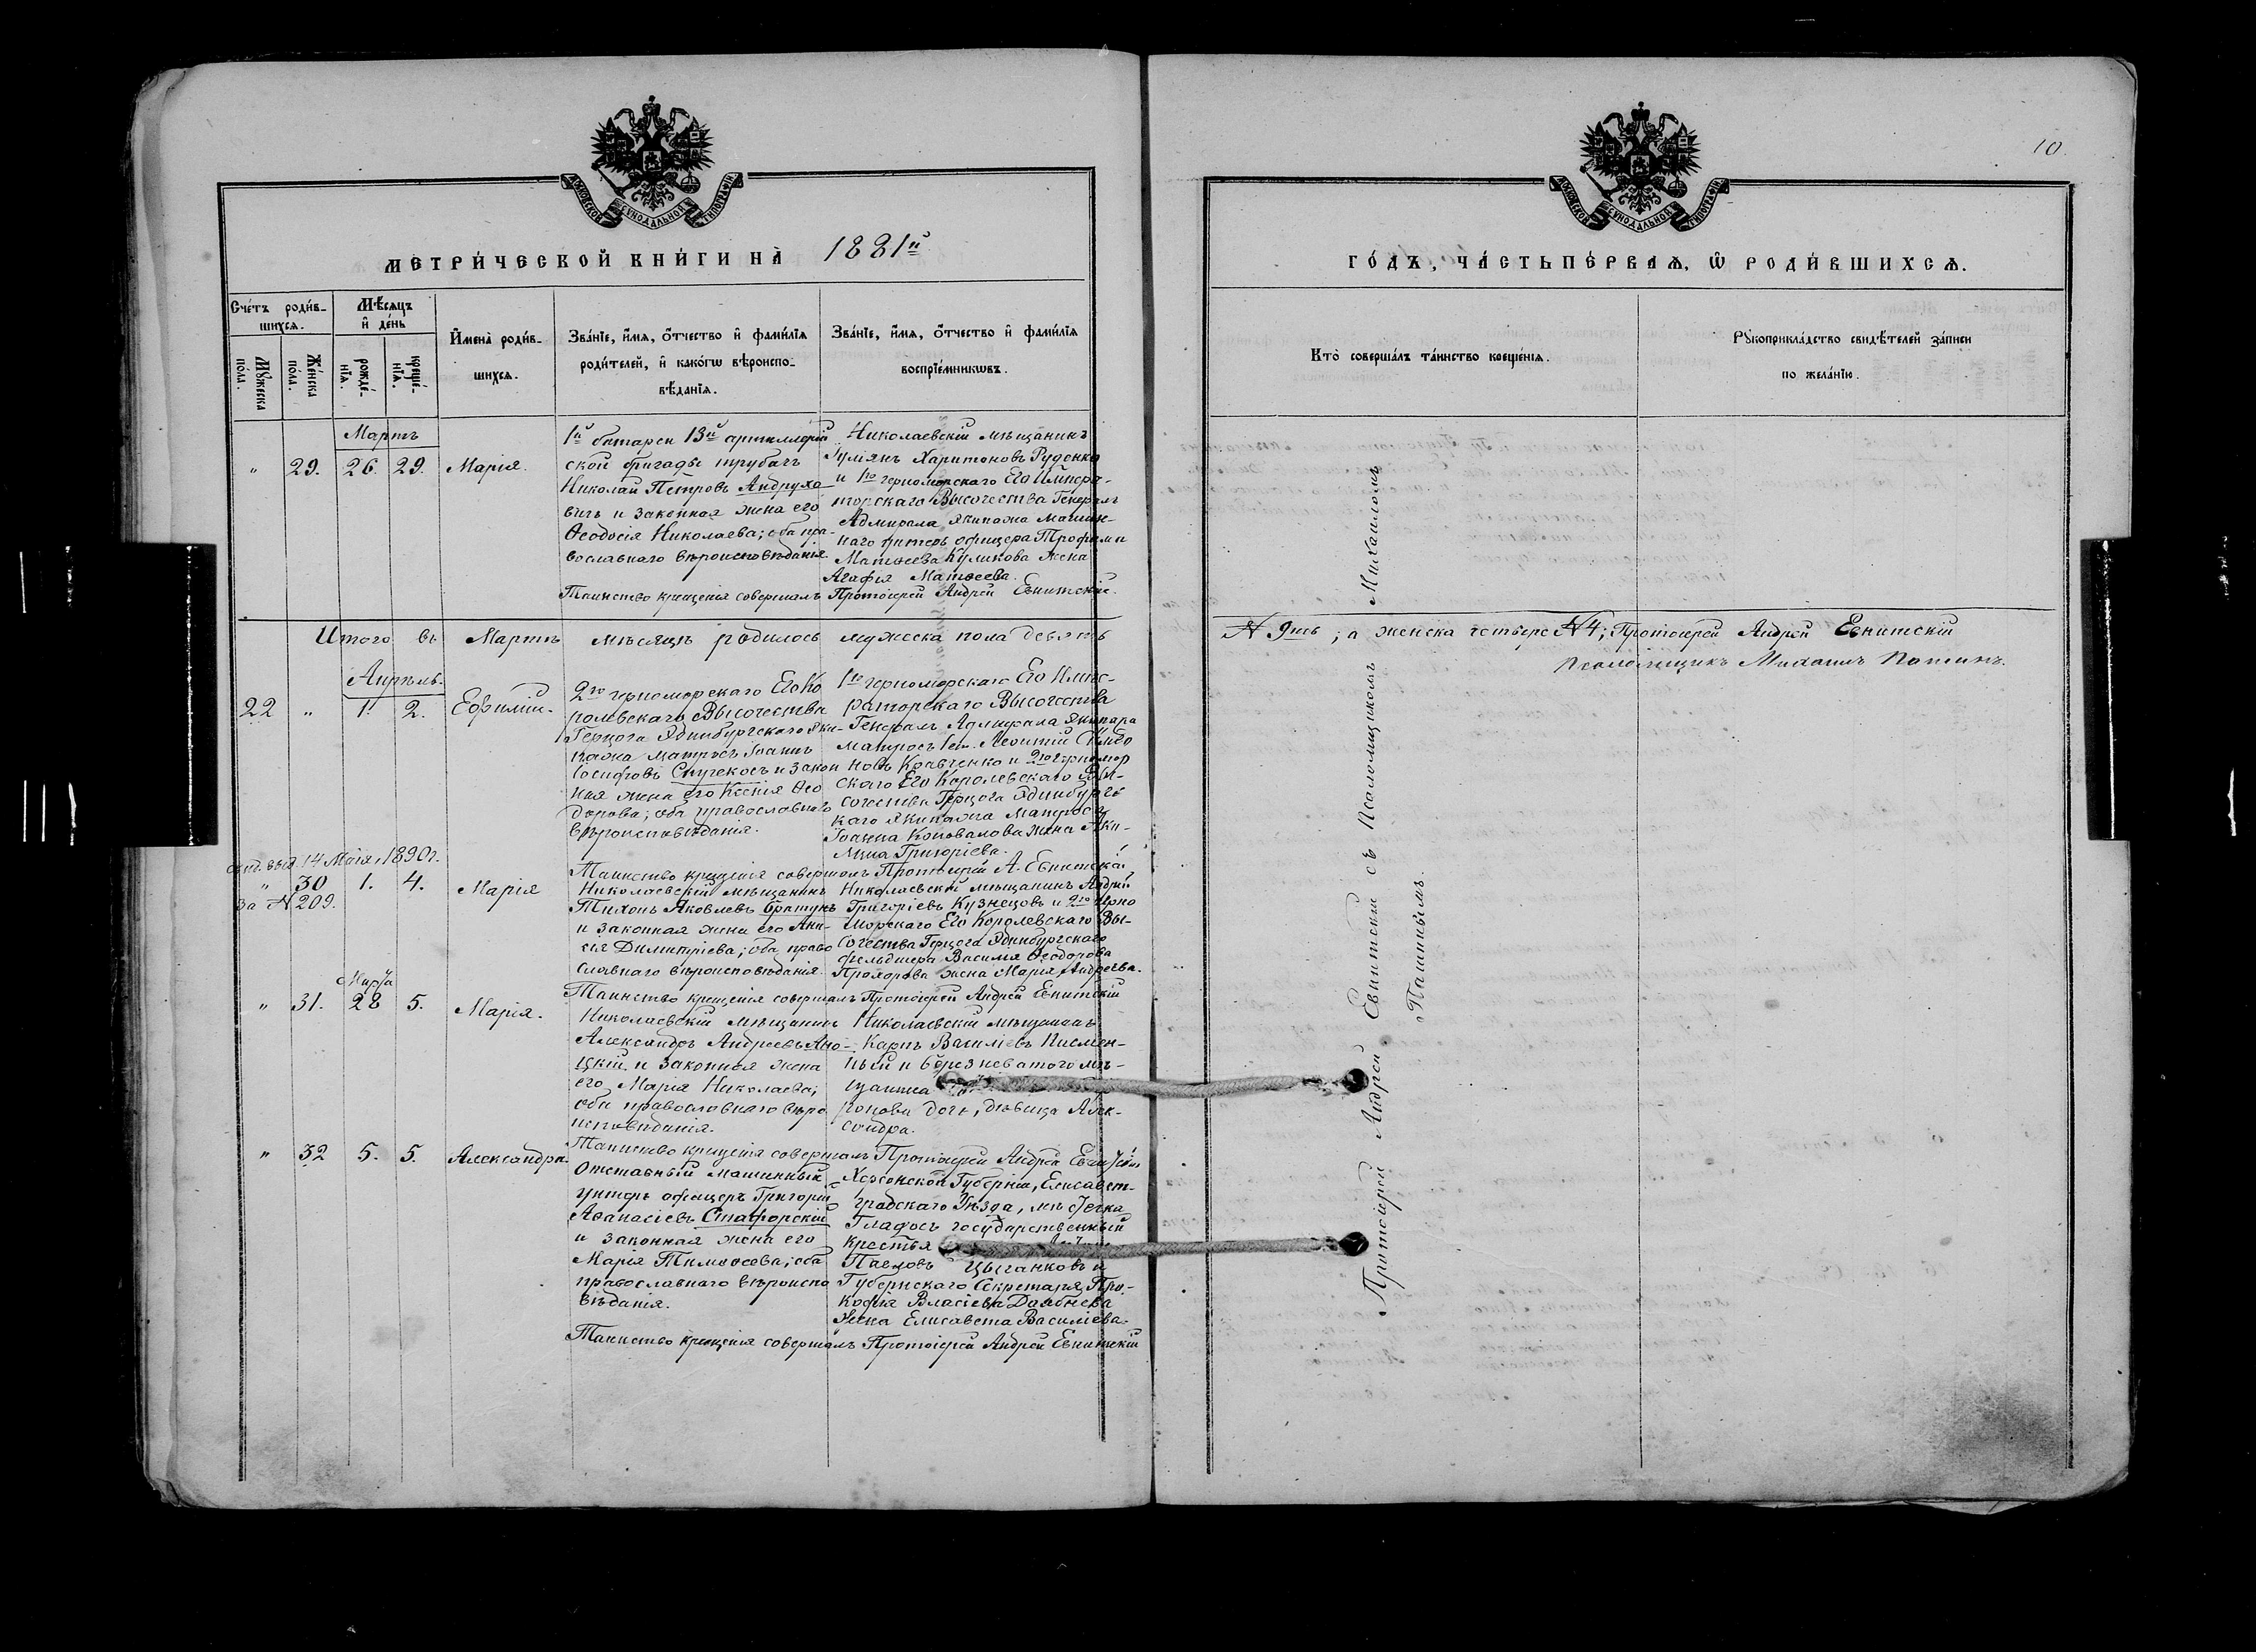 МОСКОВСКОЙ СѴНОДАЛЬНОЙ ТИПОГРАФІИ
МЕТРИ́ЧЕСКОЙ КНИ́ГИ НА̀ 1881й
Сче́тъ роди́в-
шихсѧ.
Мѣ́сѧцъ
и҆ де́нь
Мꙋ́жеска
по́ла.
Же́нска
по́ла.
рожде́-
нїѧ.
креще́-
нїѧ.
И҆мена̀ роди́в-
шихсѧ.
Зва́нїе, и҆́мѧ, ѻ҆́тчество и҆ фами́лїѧ
роди́телей, и҆ како́гѡ вѣроиспо-
вѣ́данїѧ.
Зва́нїе, и҆́мѧ, ѻ҆́тчество и҆ фами́лїѧ
воспрїе́мникѡвъ.
Мартъ
" 29. 26. 29. Марія.
1й батареи 13й артиллерій
ской бригады трубачъ
Николай Петровъ Андрухо
вичъ и законная жена его
Ѳеодосія Николаева; оба пра-
вославнаго вѣроисповѣданія.
Николаевскій мѣщанинъ
Харитоновъ Руденко
и 1го черноморскаго Его Импера-
торскаго Высочества Генералъ
Адмирала экипажа машин-
наго унтеръ офицера Трофима
Матвеева Куликова жена
Агафія Матвеева.
Таинство крещенія совершалъ Протоіерей Андрей Евнитскій.
Итого въ Мартѣ мѣсяцѣ родилось мужеска пола девять
Апрѣль.
22 " 1. 2. Ефимій.
2го черноморскаго Его Ко
ролевскаго Высочества
Герцога Эдинбургскаго эки-
пажа матросъ Іоаннъ
Іосифовъ и закон
ная жена его Ксенія Ѳео
дорова; оба православнаго
вѣроисповѣданія.
1го черноморскаго Его Импе-
раторскаго Высочества
Генералъ Адмирала экипажа
матросъ Леонтій
новъ Кравченко и 2го черномор
скаго Его Королевскаго Вы-
сочества Герцога Эдинбургс
каго экипажа матроса
Іоанна Коновалова жена Аки-
лина Григоріева.
Таинство крещенія совершалъ Протоіерей А. Евнитскій.
выд. 14 Мая 1890г.
" 30 1. 4. Марія
за № 209.
Николаевскій мѣщанинъ
Тихонъ Яковлевъ Братунъ
и законная жена его Ани-
сія Димитріева; оба право
славнаго вѣроисповѣданія.
Николаевскій мѣщанинъ Андрей
Григоріевъ Кузнецовъ и 2го черно
морскаго Его Королевскаго Вы-
сочества Герцога Эдинбургскаго
фельдшера Василія Ѳеодорова
Прохорова жена Марія Андреева.
Таинство крещенія совершалъ Протоіерей Андрей Евнитскій
Марта
" 31. 28 5. Марія.
Николаевскій мѣщанинъ
Александръ Андреевъ
цкій и законная жена
его Марія Николаева;
оба православнаго вѣро
исповѣданія.
Николаевскій мѣщанинъ
Карпъ Василіевъ Писмен-
ный и березневатого мѣ-
щанина
ронова дочь, дѣвица Алек-
сандра.
Таинство крещенія совершалъ Протоіерей Андрей Евнитскій
" 32 5. 5. Александра.
Отставный машинный
унтеръ офицеръ Григорій
Аѳанасіевъ Стафорскій
и законная жена его
Марія Тимоѳеева; оба
православнаго вѣроиспо
вѣданія.
Херсонской Губерніи, Елисавет-
градскаго Уѣзда, мѣстечка
государственный
крестья
Павловъ Цыганковъ и
Губернскаго Секретаря Про-
кофія Власіева
жена Елисавета Василіева.
Таинство крещенія совершалъ Протоіерей Андрей Евнитскій
10.
МОСКОВСКОЙ СѴНОДАЛЬНОЙ ТИПОГРАФІИ
ГО́ДЪ, ЧА́СТЬ ПЕ́РВАѦ, Ѽ РОДИ́ВШИХСѦ.
Кто̀ соверша́лъ та́инство креще́нїѧ.
Рꙋкоприкла́дство свидѣ́телей за́писи
по жела́нїю.
№ 9ть; а женска четыре № 4; Протоіерей Андрей Евнитскій
Псаломщикъ Михаилъ Пашинъ.
Протоіерей Андрей Евнитскій съ Псаломщикомъ Михаиломъ
Пашинымъ.